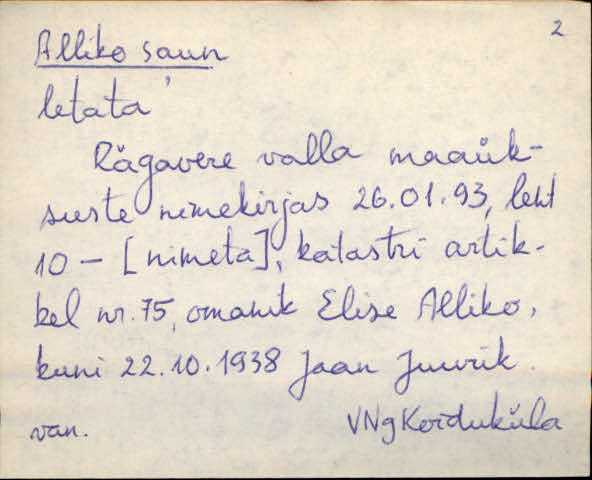 2
Alliko saun
letata
Rägavere valla maaük-
suste nimekirjas 26.01.93, leht
10 – [nimeta], katastri artik-
kel nr. 75, omanik Elise Alliko,
kuni 22.10.1938 Jaan Juurik.
van. VNg Koiduküla